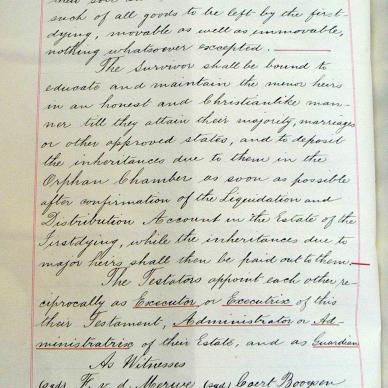 such of all goods to be left by the first-
dying, movable as well as immovable,
nothing whatsoever excepted.
The Survivor shall be bound to
educate and maintain the minor heirs
in an honest and Christianlike man-
ner till they attain their majority, marriages
or other approved states, and to deposit
the inheritances due to them in the
Orphan Chamber as soon as possible
after confirmation of the Liquidation and
Distribution Account in the Estate of the
Firstdying, while the inheritances due to
major heirs shall then be paid out to them.
The Testators appoint each other re-
ciprocally as Executor or Executrix of this
their Testament, Administrator or Ad-
ministratrix of their Estate, and as Guardian
As Witnesses
(sgd) F. v. d. Merwe (sgd) Coert Booysen